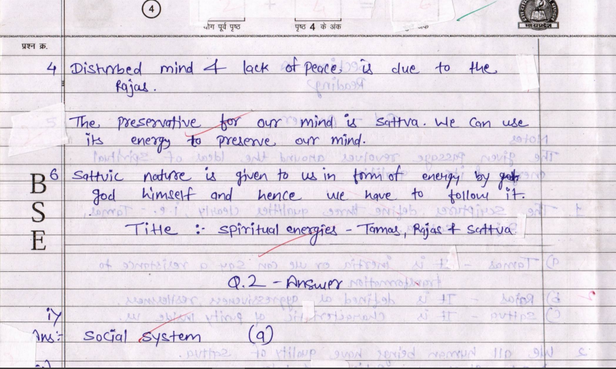 4
योग पूर्व पृष्ठ
पृष्ठ 4 के अंक
अंक
प्रश्न क्र.
4 Disturbed mind & lack of Peace, is due to the
Rajas.
The preservative for our mind is sattva. We can use
its energy to preserve our mind.
6 Sattvic nature is given to us in form of energy by
god himself and hence we have to follow it.
B
S
E
Title :- spiritual energies - Tamas, Rajas & Sattva
Q.2 - Answer
iy
Ans:- Social system (a)